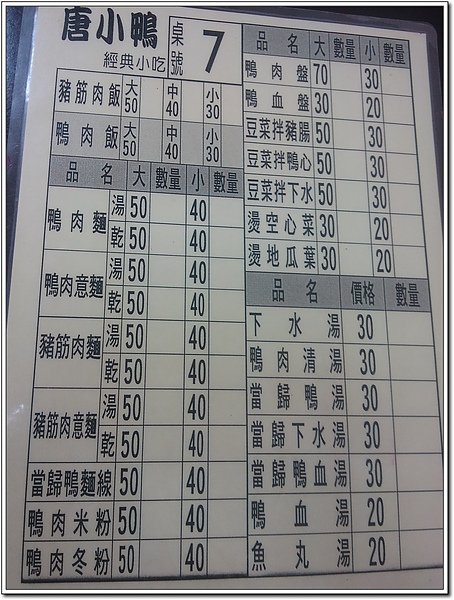 唐小鴨
經典小吃
桌號 7
豬筋肉飯 大50 中40 小30
鴨肉飯 大50 中40 小30
品名 大 數量 小 數量
鴨肉麵 湯 50 40
乾 50 40
鴨肉意麵 湯 50 40
乾 50 40
豬筋肉麵 湯 50 40
乾 50 40
豬筋肉意麵 湯 50 40
乾 50 40
當歸鴨麵線 50 40
鴨肉米粉 50 40
鴨肉冬粉 50 40
品名 大 數量 小 數量
鴨肉盤 70 30
鴨血盤 30 20
豆菜拌豬腸 50 30
豆菜拌鴨心 50 30
豆菜拌下水 50 30
燙空心菜 30 20
燙地瓜葉 30 20
品名 價格 數量
下水湯 30
鴨肉清湯 30
當歸鴨湯 30
當歸下水湯 30
當歸鴨血湯 30
鴨血湯 20
魚丸湯 20